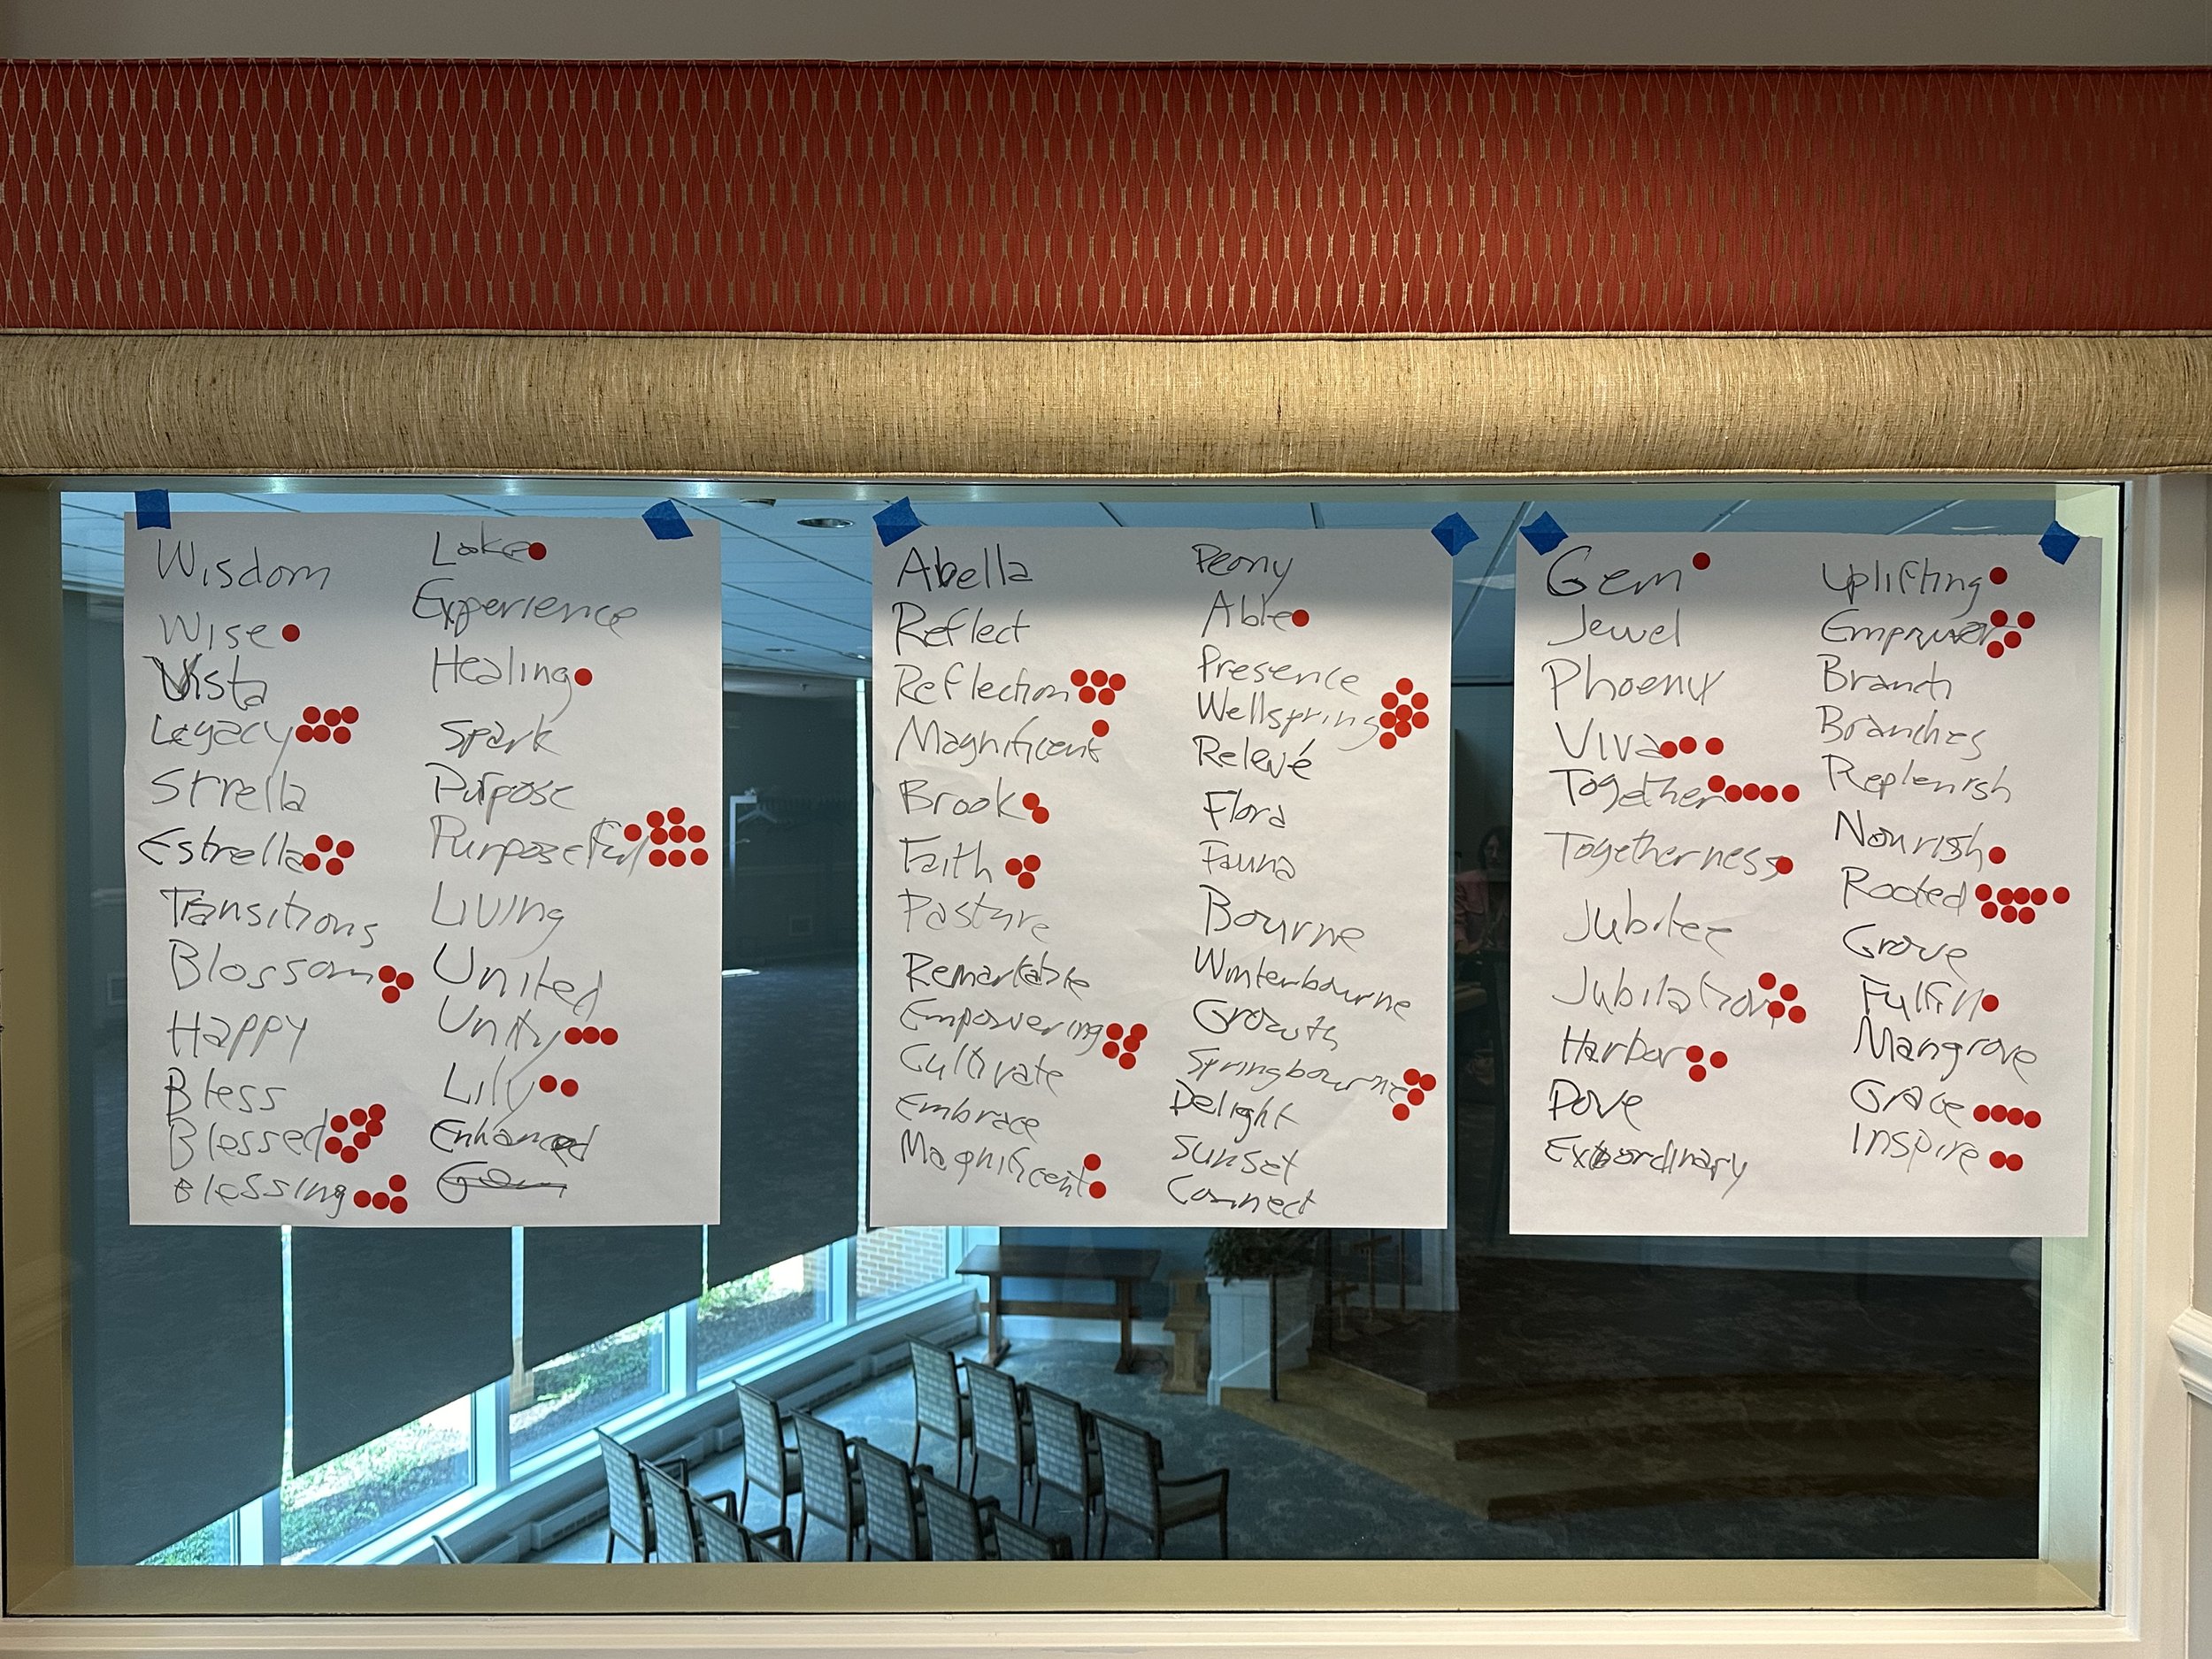 Wisdom
Wise
Vista
Legacy
Strella
Estrella
Transitions
Blossom
Happy
Bless
Blessed
Blessing
Lake
Experience
Healing
Spark
Purpose
Purposeful
Living
United
Unity
Lily
Enhanced
Gem
Abella
Reflect
Reflection
Magnificent
Brook
Faith
Pasture
Remarkable
Empowering
Cultivate
Embrace
Magnificent
Peony
Able
Presence
Wellspring
Relevé
Flora
Fauna
Bourne
Winterbourne
Growth
Springbourne
Delight
Sunset
Connect
Gem
Jewel
Phoenix
Viva
Together
Togetherness
Jubilee
Jubilation
Harbor
Dove
Extraordinary
Uplifting
Empower
Branch
Branches
Replenish
Nourish
Rooted
Grove
Fulfill
Mangrove
Grace
Inspire